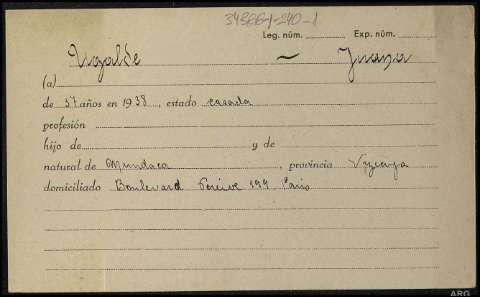 34566-240-1
Leg. núm. Exp. núm.
Ugalde ~ Juana
(a)
de 37 años en 1938, estado casada
profesión
hijo de y de
natural de Mundaca, provincia Vizcaya
domiciliado Boulevard Pereire 199 Paris
ARG